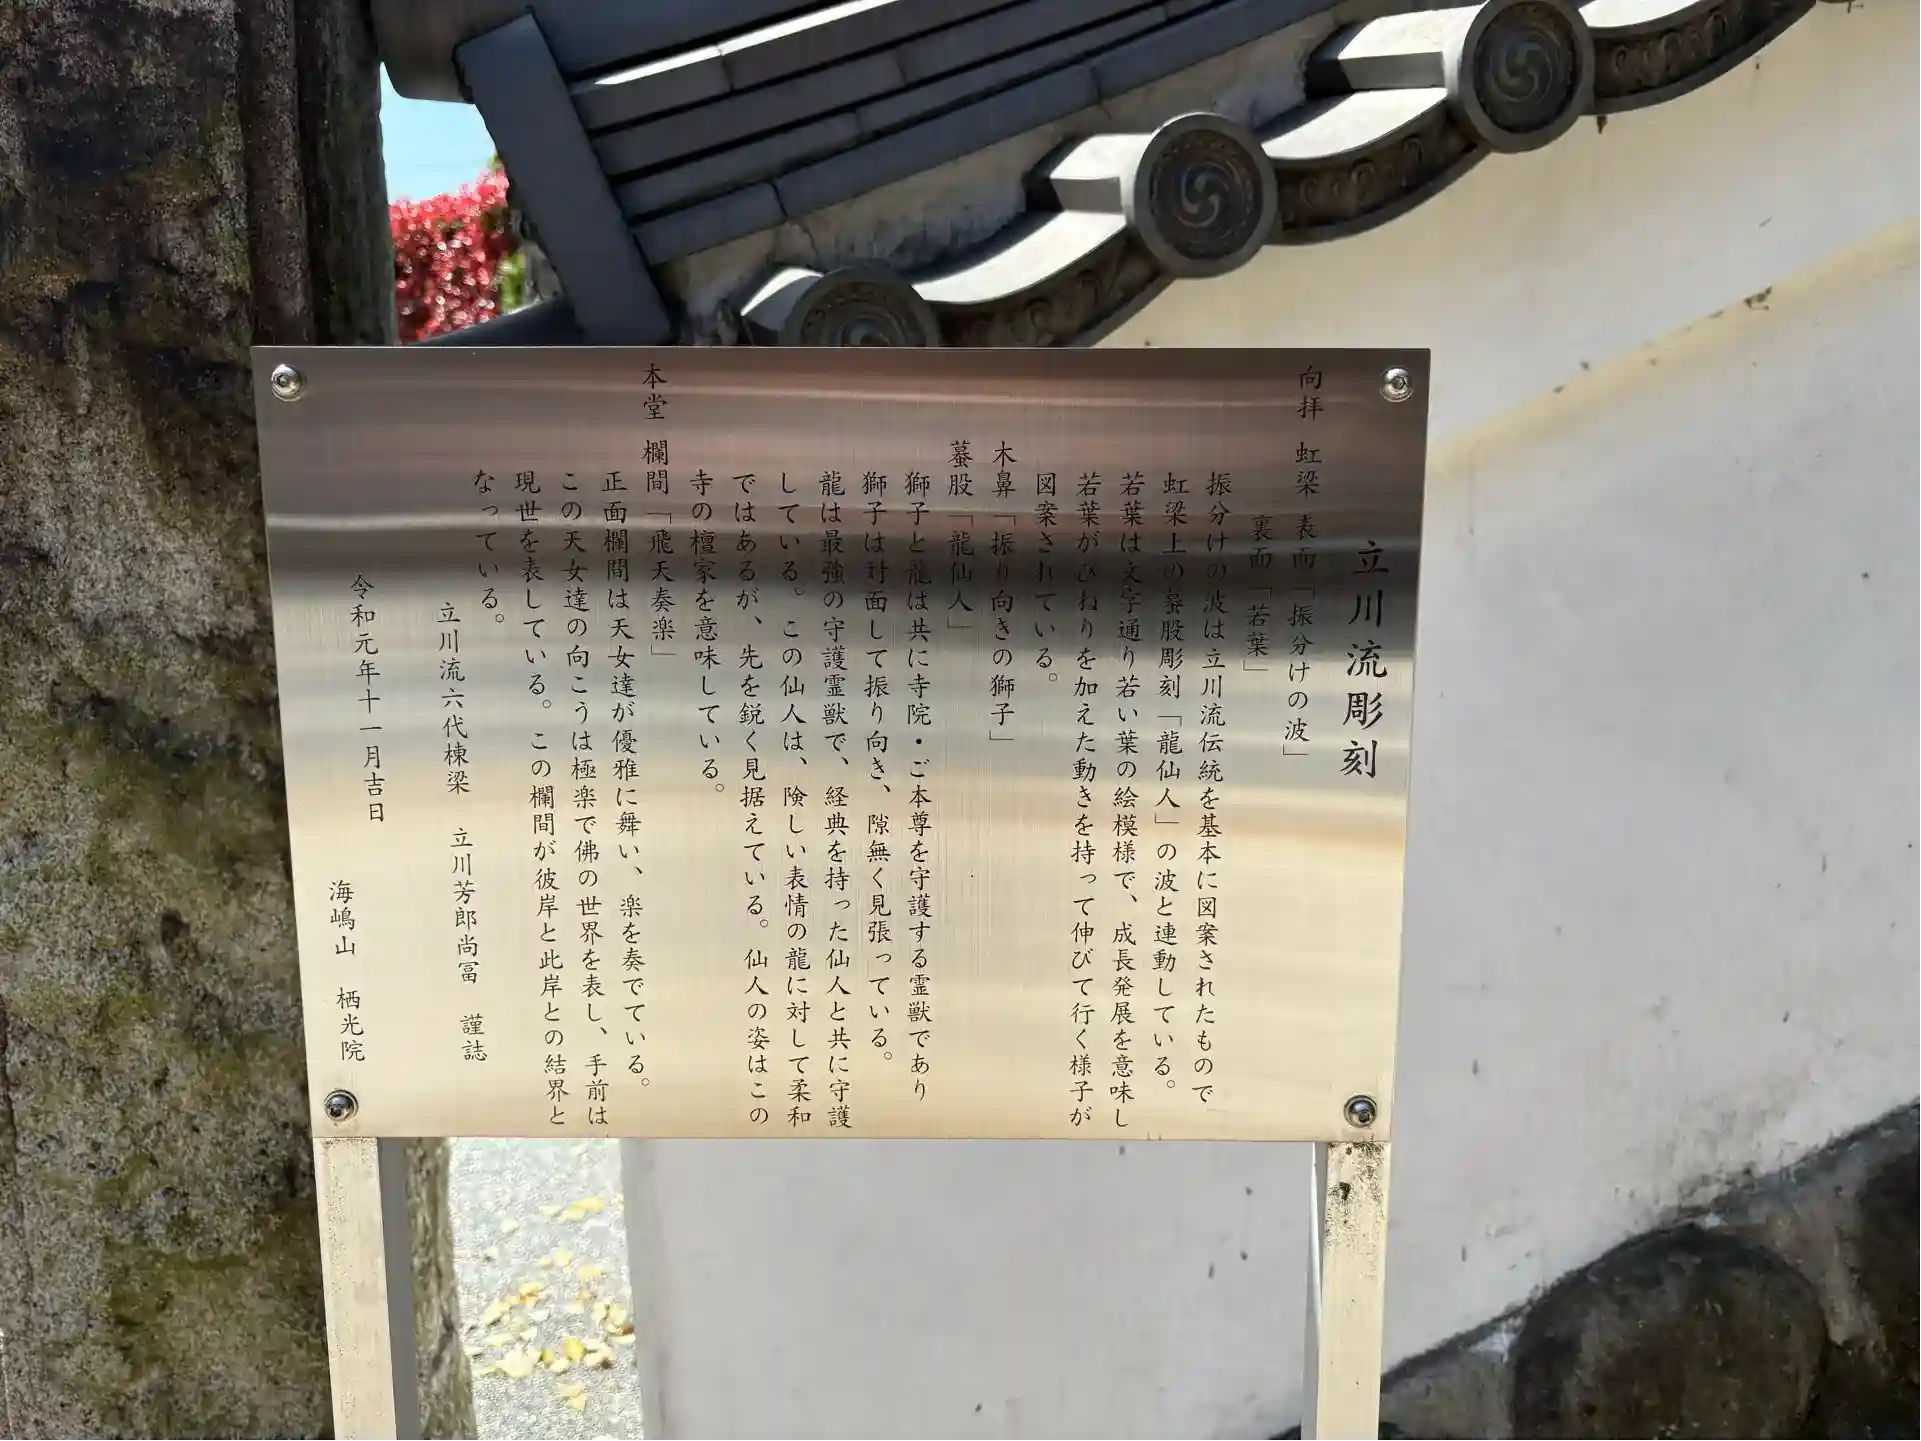 立川流彫刻
向拝 虹梁 表面「振分けの波」
裏面「若葉」
振分けの波は立川流伝統を基本に図案されたもので
虹梁上の蟇股彫刻「龍仙人」の波と連動している。
若葉は文字通り若い葉の絵模様で、成長発展を意味し
若葉がひねりを加えた動きを持って伸びて行く様子が
図案されている。
木鼻「振り向きの獅子」
蟇股「龍仙人」
獅子と龍は共に寺院・ご本尊を守護する霊獣であり
獅子は対面して振り向き、隙無く見張っている。
龍は最強の守護霊獣で、経典を持った仙人と共に守護
している。この仙人は、険しい表情の龍に対して柔和
ではあるが、先を鋭く見据えている。仙人の姿はこの
寺の檀家を意味している。
本堂 欄間「飛天奏楽」
正面欄間は天女達が優雅に舞い、楽を奏でている。
この天女達の向こうは極楽で佛の世界を表し、手前は
現世を表している。この欄間が彼岸と此岸との結界と
なっている。
立川流六代棟梁 立川芳郎尚冨 謹誌
令和元年十一月吉日
海嶋山 栖光院